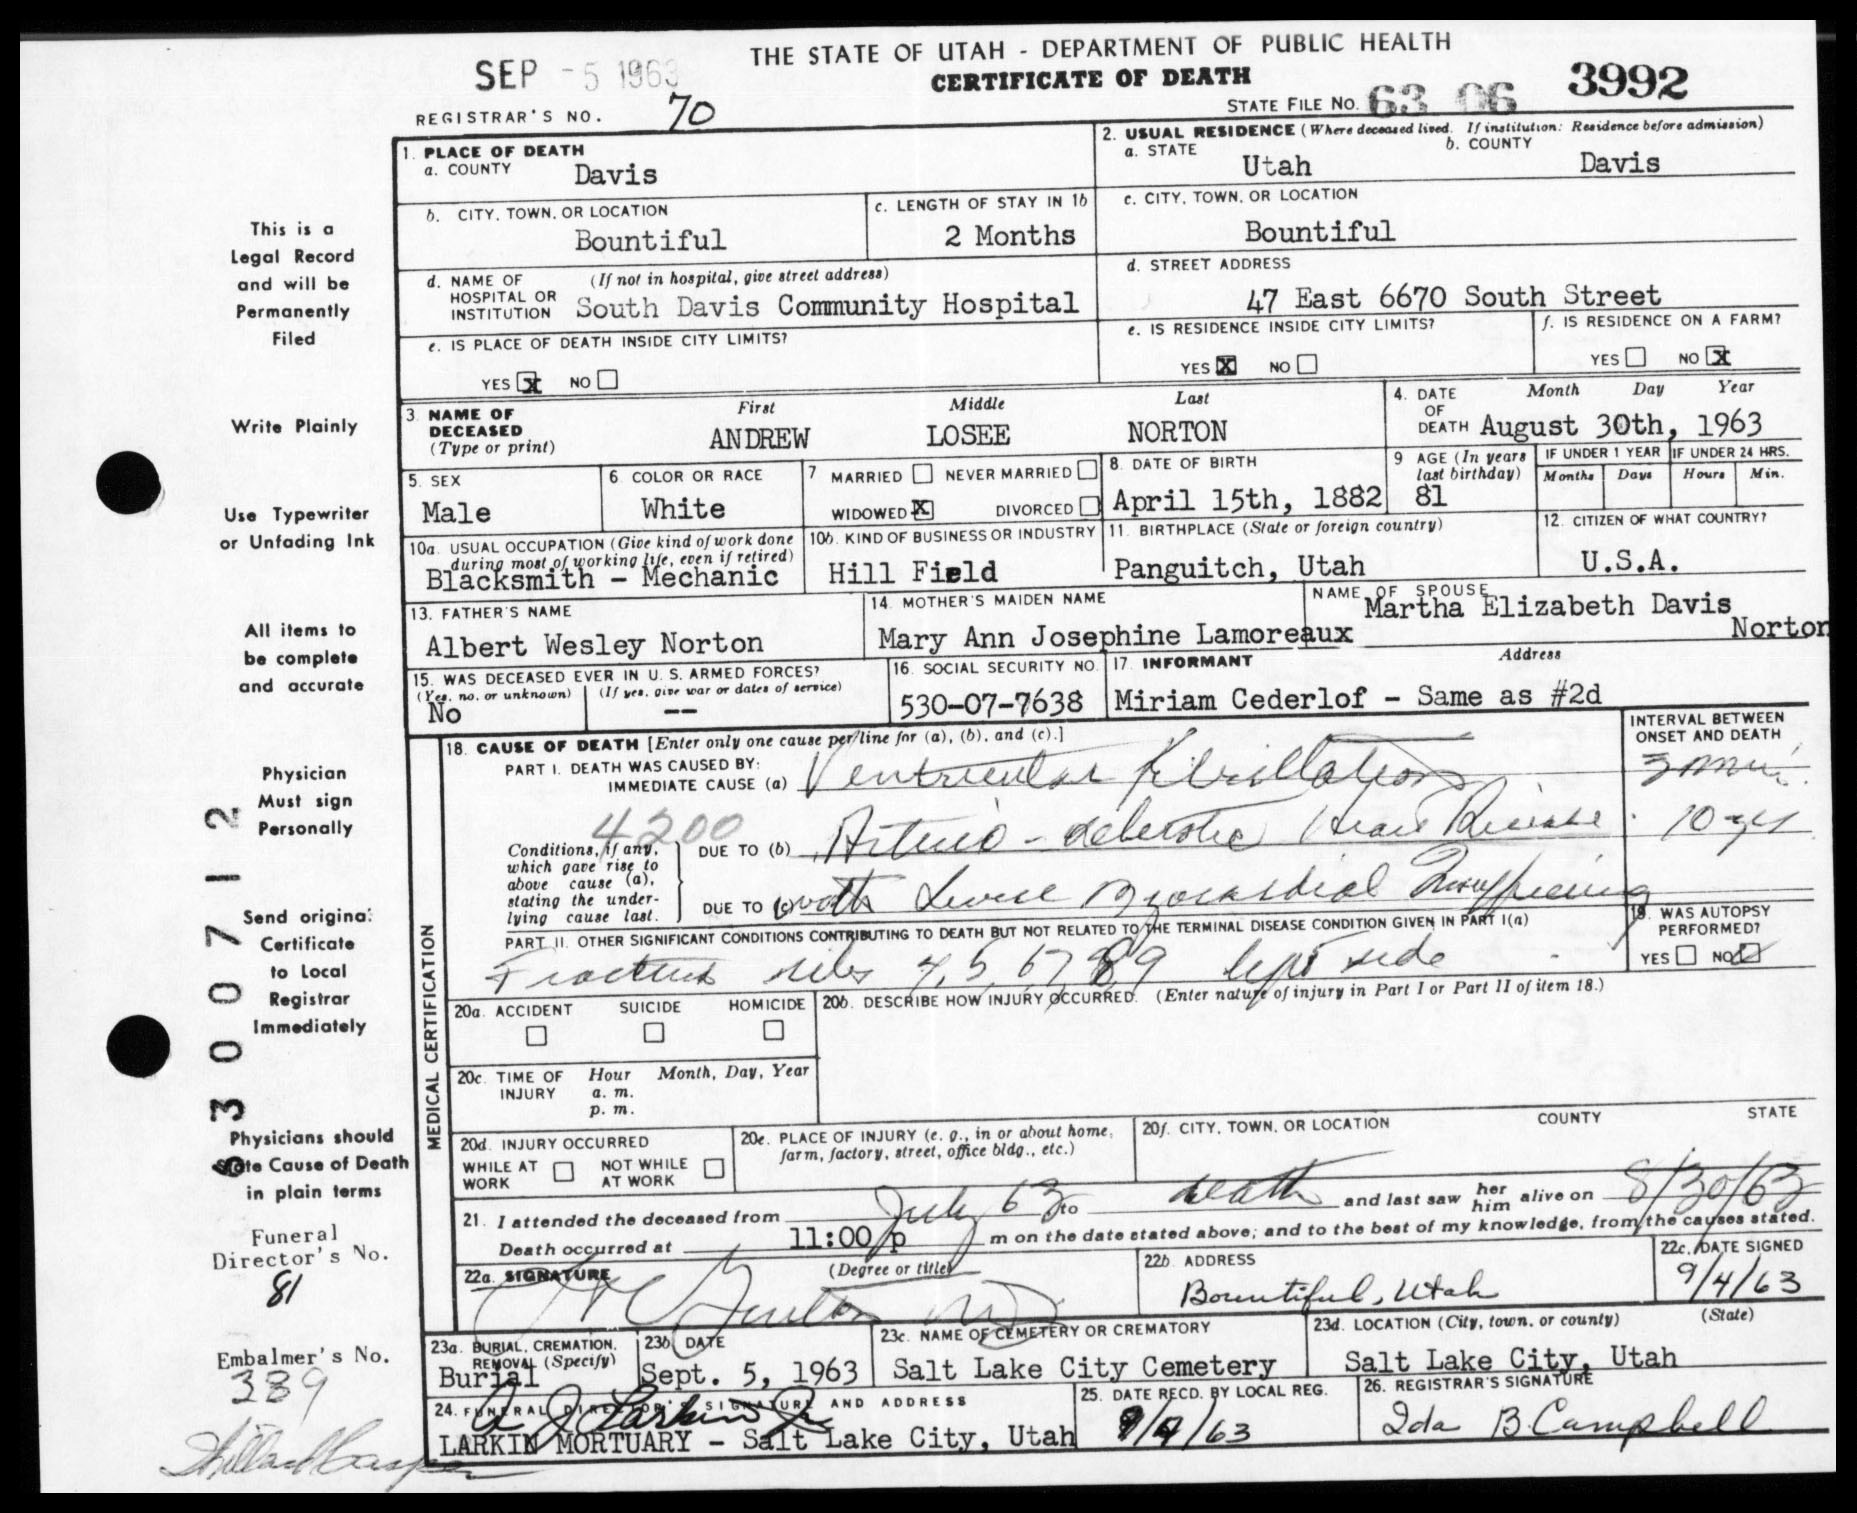 THE STATE OF UTAH - DEPARTMENT OF PUBLIC HEALTH
SEP -5 1963
CERTIFICATE OF DEATH
STATE FILE NO. 63 06 3992
REGISTRAR'S NO. 70
1. PLACE OF DEATH
a. COUNTY Davis
2. USUAL RESIDENCE (Where deceased lived. If institution: Residence before admission)
a. STATE Utah b. COUNTY Davis
b. CITY, TOWN, OR LOCATION Bountiful
c. LENGTH OF STAY IN 1b 2 Months
c. CITY, TOWN, OR LOCATION Bountiful
d. NAME OF HOSPITAL OR INSTITUTION (If not in hospital, give street address) South Davis Community Hospital
d. STREET ADDRESS 47 East 6670 South Street
e. IS PLACE OF DEATH INSIDE CITY LIMITS? YES X NO
e. IS RESIDENCE INSIDE CITY LIMITS? YES X NO
f. IS RESIDENCE ON A FARM? YES NO X
3. NAME OF DECEASED (Type or print) First ANDREW Middle LOSEE Last NORTON
4. DATE OF DEATH Month Day Year August 30th, 1963
5. SEX Male
6. COLOR OR RACE White
7 MARRIED NEVER MARRIED WIDOWED X DIVORCED
8. DATE OF BIRTH April 15th, 1882
9 AGE (In years last birthday) 81
IF UNDER 1 YEAR Months Days IF UNDER 24 HRS. Hours Min.
10a. USUAL OCCUPATION (Give kind of work done during most of working life, even if retired) Blacksmith - Mechanic
10b. KIND OF BUSINESS OR INDUSTRY Hill Field
11. BIRTHPLACE (State or foreign country) Panguitch, Utah
12. CITIZEN OF WHAT COUNTRY? U.S.A.
13. FATHER'S NAME Albert Wesley Norton
14. MOTHER'S MAIDEN NAME Mary Ann Josephine Lamoreaux
NAME OF SPOUSE Martha Elizabeth Davis Norton
15. WAS DECEASED EVER IN U. S. ARMED FORCES? (Yes, no, or unknown) No (If yes, give war or dates of service) --
16. SOCIAL SECURITY NO. 530-07-7638
17. INFORMANT Address Miriam Cederlof - Same as #2d
MEDICAL CERTIFICATION
18. CAUSE OF DEATH [Enter only one cause per line for (a), (b), and (c).]
INTERVAL BETWEEN ONSET AND DEATH
PART I. DEATH WAS CAUSED BY:
IMMEDIATE CAUSE (a) Ventricular Fibrillation 3 min.
4200
Conditions, if any, which gave rise to above cause (a), stating the underlying cause last.
DUE TO (b) Arterio-sclerotic Heart Disease 10 yrs
DUE TO (c) with Severe Myocardial Insufficiency
PART II. OTHER SIGNIFICANT CONDITIONS CONTRIBUTING TO DEATH BUT NOT RELATED TO THE TERMINAL DISEASE CONDITION GIVEN IN PART I(a)
Fractured ribs 4,5,6,7,8,9 left side
19. WAS AUTOPSY PERFORMED? YES NO
20a. ACCIDENT SUICIDE HOMICIDE
20b. DESCRIBE HOW INJURY OCCURRED. (Enter nature of injury in Part I or Part II of item 18.)
20c. TIME OF INJURY Hour a. m. p. m. Month, Day, Year
20d. INJURY OCCURRED WHILE AT WORK NOT WHILE AT WORK
20e. PLACE OF INJURY (e. g., in or about home, farm, factory, street, office bldg., etc.)
20f. CITY, TOWN, OR LOCATION COUNTY STATE
21. I attended the deceased from July 63 to death and last saw her him alive on 8/30/63
Death occurred at 11:00 p m on the date stated above; and to the best of my knowledge, from the causes stated.
22a. SIGNATURE (Degree or title)
22b. ADDRESS Bountiful, Utah
22c. DATE SIGNED 9/4/63
23a. BURIAL, CREMATION, REMOVAL (Specify) Burial
23b. DATE Sept. 5, 1963
23c. NAME OF CEMETERY OR CREMATORY Salt Lake City Cemetery
23d. LOCATION (City, town, or county) (State) Salt Lake City, Utah
24. FUNERAL DIRECTOR'S SIGNATURE AND ADDRESS
A J Larkin Jr
LARKIN MORTUARY - Salt Lake City, Utah
25. DATE RECD. BY LOCAL REG. 9/4/63
26. REGISTRAR'S SIGNATURE Ida B. Campbell
This is a
Legal Record
and will be
Permanently
Filed
Write Plainly
Use Typewriter
or Unfading Ink
All items to
be complete
and accurate
Physician
Must sign
Personally
Send original
Certificate
to Local
Registrar
Immediately
Physicians should
State Cause of Death
in plain terms
Funeral
Director's No.
81
Embalmer's No.
389
63000712